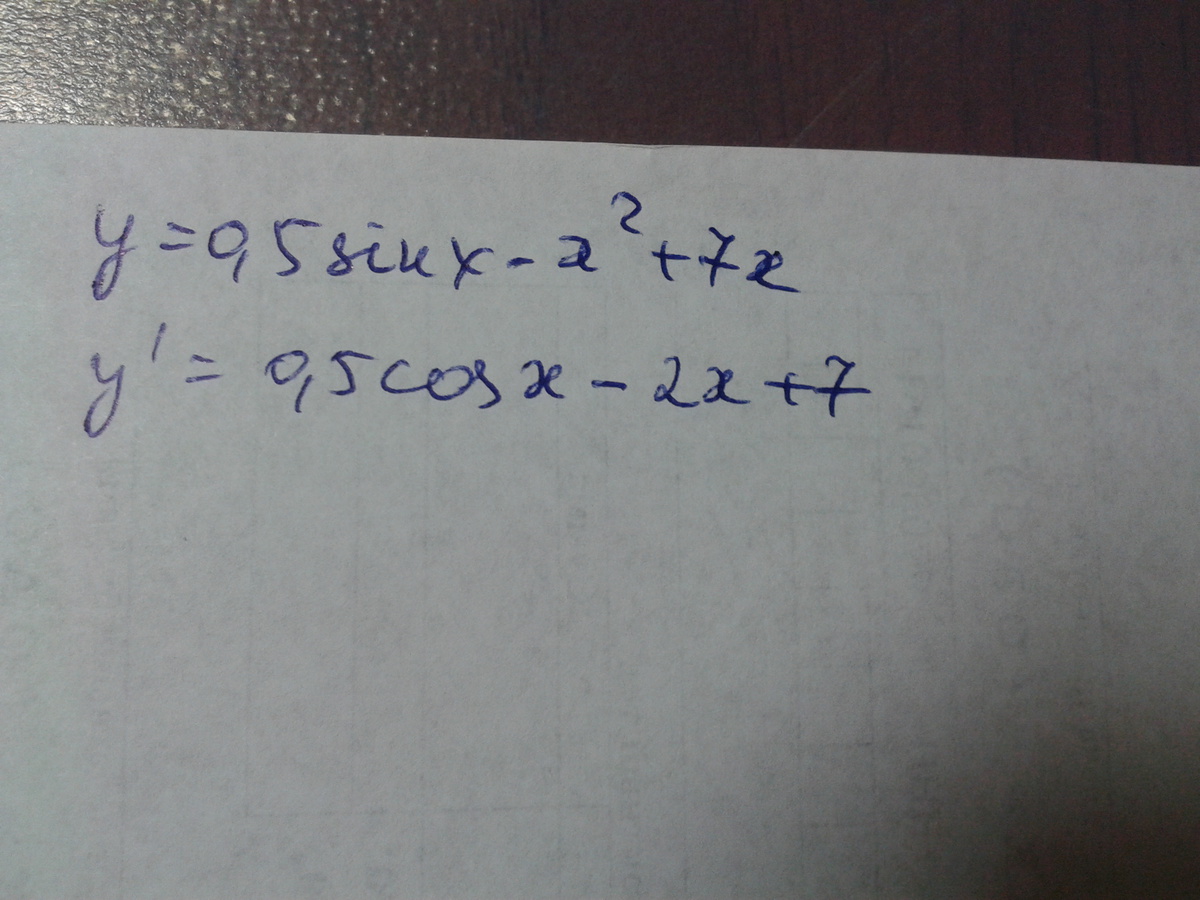 y = 0,5 sin x - x² + 7x
y' = 0,5 cos x - 2x + 7